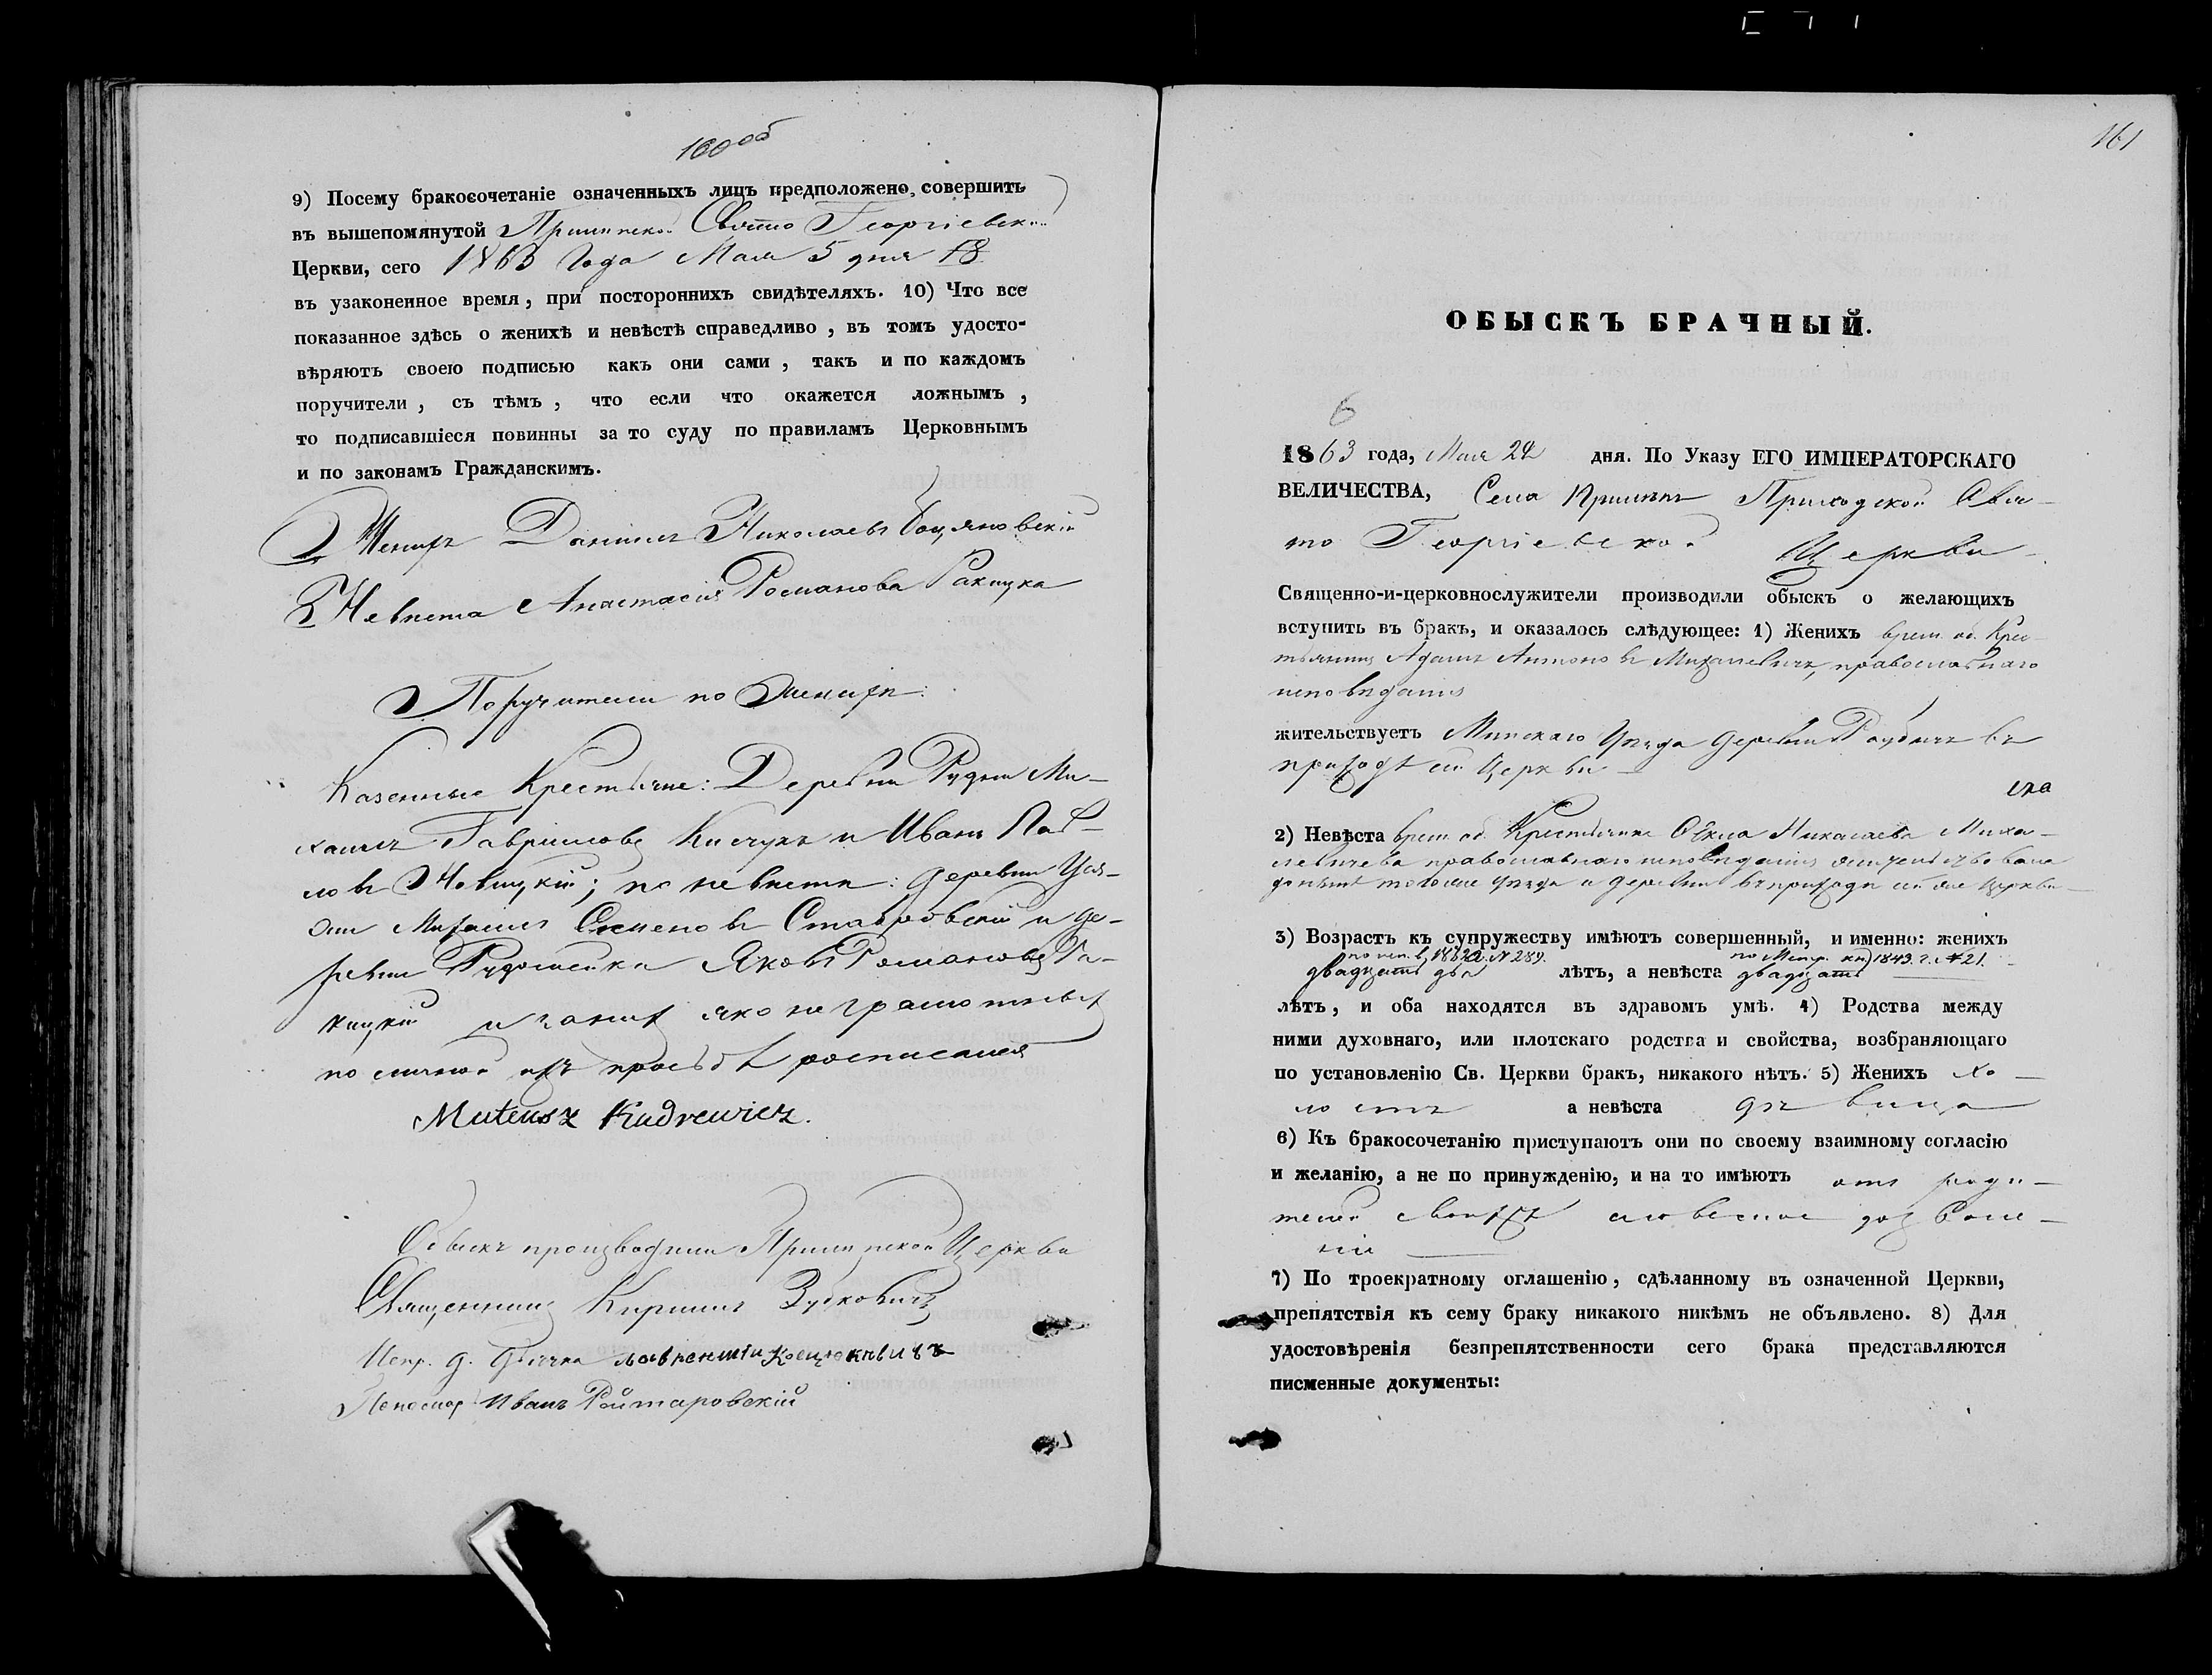 160 об
9) Посему бракосочетаніе означенныхъ лицъ предположено совершить
въ вышепомянутой Свято Георгіевск..
Церкви, сего 1863 Года Мая 5 дня 18
въ узаконенное время, при постороннихъ свидѣтеляхъ. 10) Что все
показанное здѣсь о женихѣ и невѣстѣ справедливо, въ томъ удосто-
вѣряютъ своею подписью какъ они сами, такъ и по каждомъ
поручители, съ тѣмъ, что если что окажется ложнымъ,
то подписавшіеся повинны за то суду по правиламъ Церковнымъ
и по законамъ Гражданскимъ.
Женихъ Даніилъ Николаевъ Боцяновскій
Невѣста Анастасія Романова Ракицка
Поручители по Женихѣ:
Казенные Крестьяне: Деревни Рудни Ми-
хаилъ Гавріиловъ Кисчукъ и Иванъ Пав-
ловъ Новицкій; по невѣстѣ: деревни
Михаилъ Семеновъ Ставровскій и де-
ревни Яковъ Романовъ Ра-
кицкій яко неграмотныхъ
по личной ихъ прозьбѣ росписался
Mateusz Kudrewicz.
Обыскъ производили Церкви
Священникъ Кириллъ
Испр. д. дьячка Лаврентій
Пономар Иванъ Роитаровскій
161
ОБЫСКЪ БРАЧНЫЙ.
6
1863 года, Мая 22 дня. По Указу ЕГО ИМПЕРАТОРСКАГО
ВЕЛИЧЕСТВА, Села Приходской Свя-
то Георгіевской Церкви
Священно-и-церковнослужители производили обыскъ о желающихъ
вступить въ бракъ, и оказалось слѣдующее: 1) Женихъ врем. об. Крес-
тьянинъ Адамъ Антоновъ Михалевичъ, православнаго
исповѣданія
жительствуетъ Минскаго Уѣзда деревни въ
приходѣ сей Церкви
2) Невѣста врем. об. Крестьянка Николаева Миха-
левичева православнаго исповѣданія жительствовала
донынѣ тогоже уѣзда и деревни въ приходѣ сей же Церкви
3) Возрастъ къ супружеству имѣютъ совершенный, и именно: женихъ
№ 289. по Метр. кн. 1843. г. № 21.
двадцать два лѣтъ, а невѣста двадцать
лѣтъ, и оба находятся въ здравомъ умѣ. 4) Родства между
ними духовнаго, или плотскаго родства и свойства, возбраняющаго
по установленію Св. Церкви бракъ, никакого нѣтъ. 5) Женихъ хо-
лостъ а невѣста дѣвица
6) Къ бракосочетанію приступаютъ они по своему взаимному согласію
и желанію, а не по принужденію, и на то имѣютъ отъ роди-
телей своихъ словесное дозволе-
ніе
7) По троекратному оглашенію, сдѣланному въ означенной Церкви,
препятствія къ сему браку никакого никѣмъ не объявлено. 8) Для
удостовѣренія безпрепятственности сего брака представляются
писменные документы: